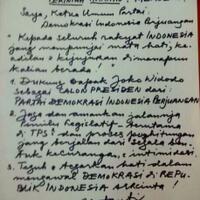 Saya, Ketua Umum Partai
Demokrasi Indonesia Perjuangan
* Kepada seluruh rakyat INDONESIA
yang mempunyai mata hati, ke-
adilan & kejujuran di manapun
Kalian berada
1. Dukung Bapak Joko Widodo
sebagai CALON PRESIDEN dari:
PARTAI DEMOKRASI INDONESIA PERJUANGAN
2. Jaga dan amankan jalannya
Pemilu Legislatif terutama
di TPS2 dan proses penghitungan
yang berjalan dari segala ben-
tuk kecurangan, intimidasi
3. Teguh & tegarkan hati dalam
mengawal DEMOKRASI di REPU-
BLIK INDONESIA